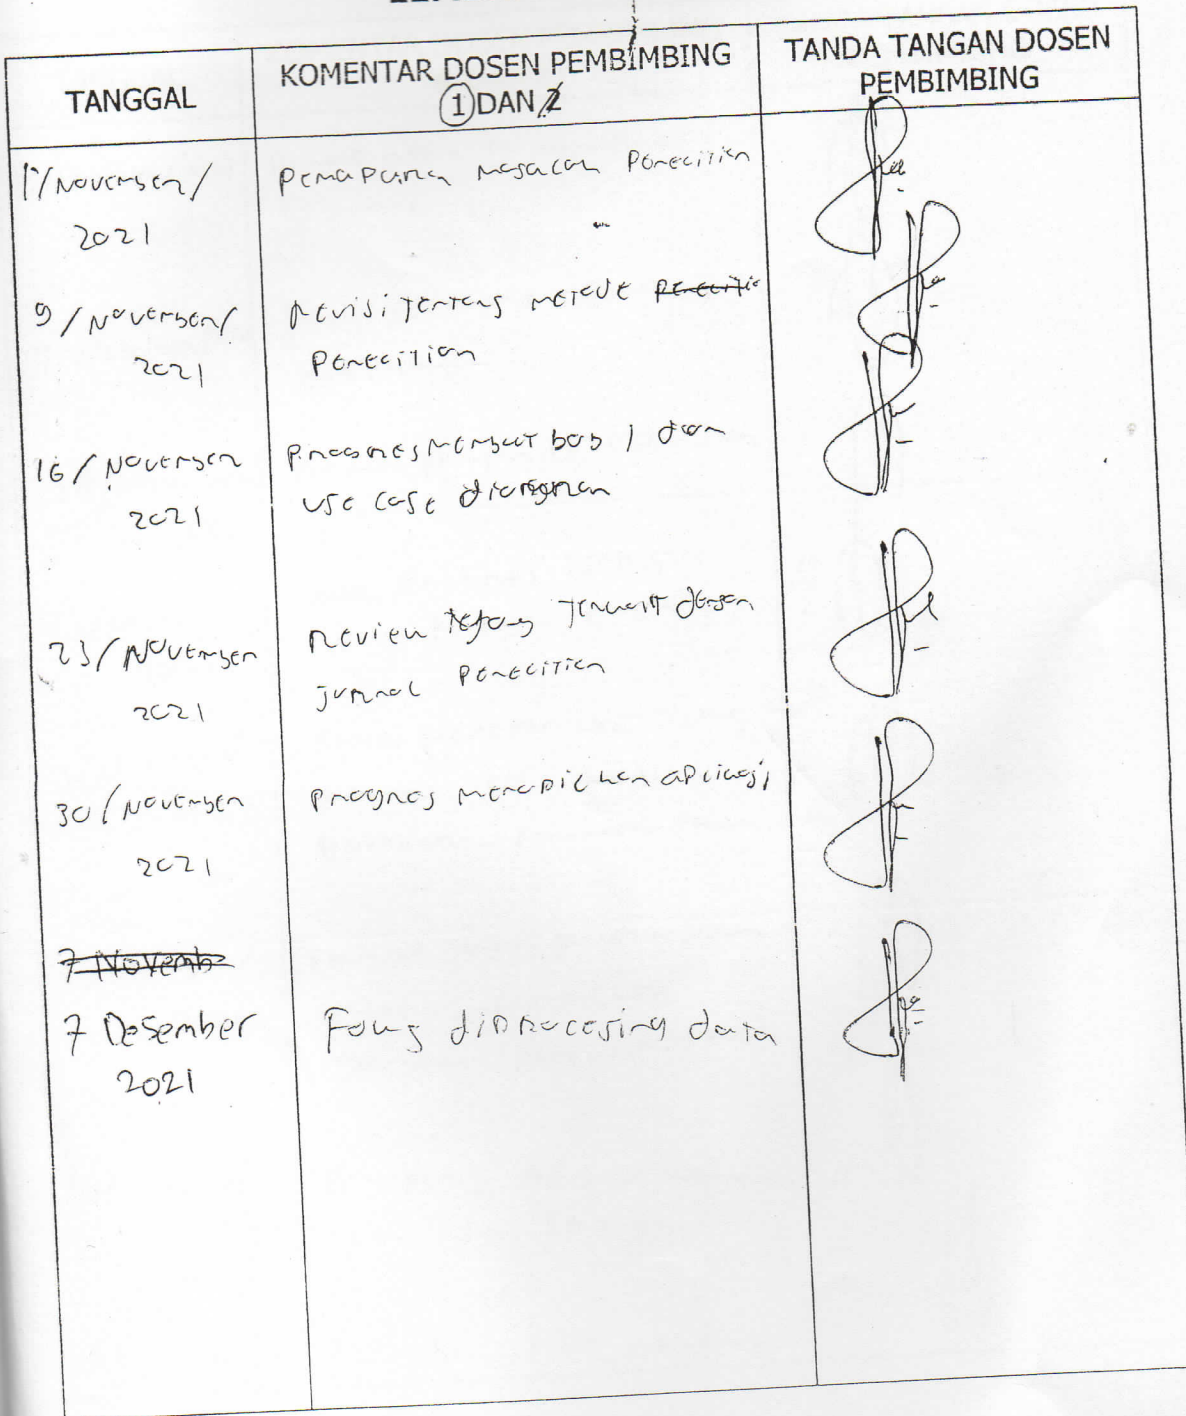 TANGGAL
KOMENTAR DOSEN PEMBIMBING
1 DAN 2
TANDA TANGAN DOSEN
PEMBIMBING
/November/
2021
Pemaparan masalah Penelitian
9/November/
2021
Revisi Tentang metode
Penelitian
16/November
2021
Progres membuat bab 1 dan
use case
23/November
2021
Review Terkait dengan
jurnal Penelitian
30/November
2021
Progres menampilkan aplikasi
7 Novembe
7 Desember
2021
data